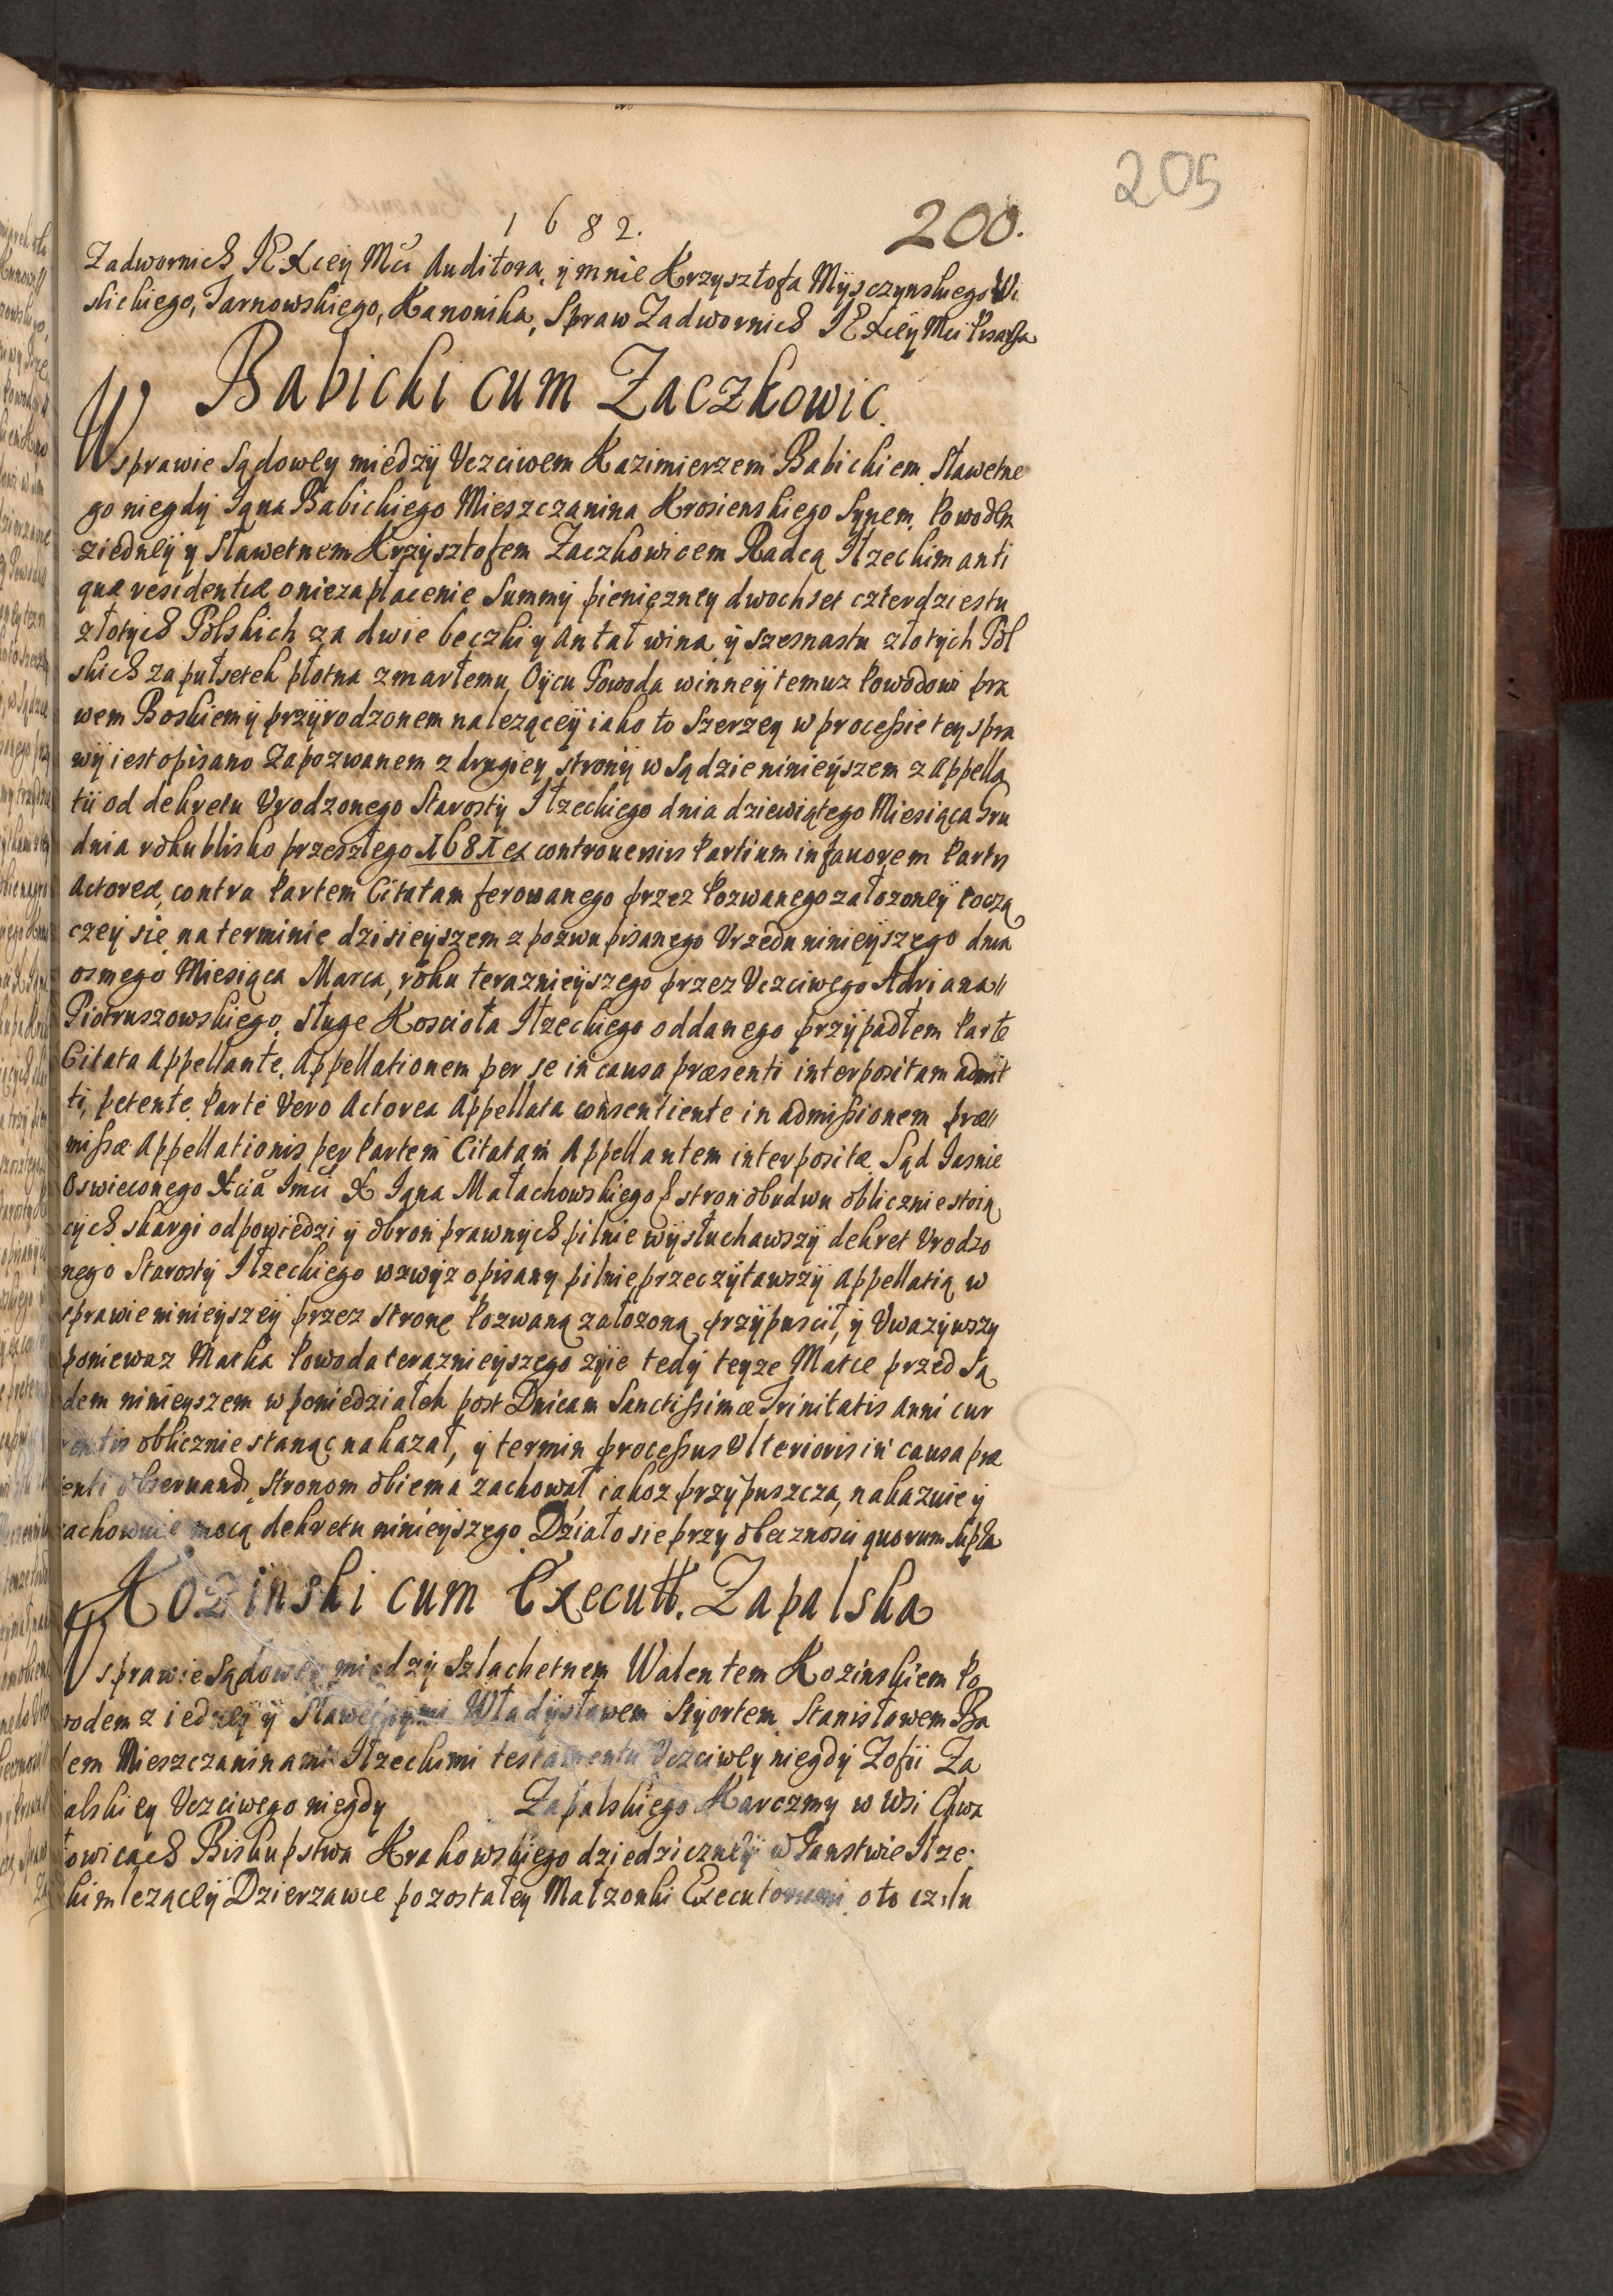 205
1682.
200.
Zadwornich JEXcey Mci Auditora, y mnie Krzysztofa Myszczynskiego Wi
slickiego, Tarnowskiego, Kanonika, Spraw Zadwornich JEXcey Mci Pisarza
Babicki cum Zaczkowic.
W sprawie Sądowey między Vczciwem Kazimierzem Babickiem, Sławetne
go niegdy Iana Babickiego Mieszczanina Krosienskiego Synem, Powodem
ziedney y Sławetnem Krzysztofem Zaczkowicem Radcą Iłzeckim anti
quæ residentiæ o niezapłacenie Summy pieniężney dwochset czterdziestu
złotych Polskich za dwie beczki y antał wina, y szesnastu złotych Pol
skich za pułsetek płotna zmarłemu Oycu Powoda winney temuz Powodowi pra
wem Boskiem y przyrodzonem nalezącey iako to Szerzey w processie tey spra
wy iest opisano Zapozwanem z drugiey strony w Sądzie ninieyszem z Appella
tii od dekretu Vrodzonego Starosty Iłzeckiego dnia dziewiątego Miesiąca Gru
dnia roku blisko przeszłego 1681 ex controuersiis Partium in fauorem Partis
Actoreæ, contra Partem Citatam ferowanego przez Pozwanego załozoney tocżą
czey sie na terminie dzisieyszem z pozwu pisanego Vrzędu ninieyszego dnia
osmego Miesiąca Marca, roku teraznieyszego przez Vczciwego Adriana
Piotruszowskiego, Sługę Koscioła Iłzeckiego oddanego przypadłem Parte
Citata Appellante, Appellationem per se in causa præsenti interpositam admit
ti, petente Parte Vero Actorea Appellata consentiente in admissionem præ
missæ Appellationis per Partem Citatam Appellantem interpositæ, Sąd Iasnie
Oswieconego Xcia Imci X Iana Małachowskiego stron obudwu oblicznie stoią
cych skargi odpowiedzi y obron prawnych pilnie wysłuchawszy dekret Vrodzo
nego Starosty Iłzeckiego wzwyz opisany pilnie przeczytawszy Appellatią w
sprawie ninieyszey przez stronę Pozwaną załozoną przypuscił, y Vwazywszy
poniewaz Matka Powoda teraznieyszego zyie tedy teyze Matce przed Są
dem ninieyszem w poniedziałek post Dnicam Sanctissimæ Trinitatis Anni cur
rentis oblicznie stanąc nakazał, y termin processus Vlterioris in causa præ
senti obseruandi, Stronom obiema zachował iakoz przypuszcza, nakazuie y
zachowuie mocą dekretu ninieyszego. Działo sie przy obecznosci quorum supra
Kozinski cum Executt. Zapalska
W sprawie Sądowey między Szlachetnem Walentem Kozinskiem Po
wodem z iedney y Sławetnymi Władysławem Styortem, Stanisławem Ba
łem Mieszczaninami Iłzeckimi testamentu Vczciwey niegdy Zofii Za
palskiey Vczciwego niegdy Zapalskiego Karczmy w Wsi Chwa
łowicach Biskupstwa Krakowskiego dziedziczney w Panstwie Iłze
kim lezącey Dzierzawce pozostałey Małzonki Executorami, o to